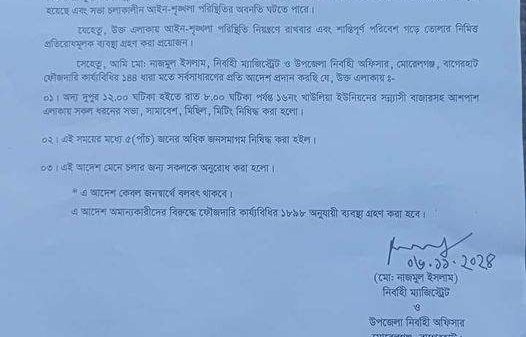 হয়েছে এবং সভা চলাকালীন আইন-শৃঙ্খলা পরিস্থিতির অবনতি ঘটতে পারে।
যেহেতু, উক্ত এলাকায় আইন-শৃঙ্খলা পরিস্থিতি নিয়ন্ত্রণে রাখবার এবং শান্তিপূর্ণ পরিবেশ গড়ে তোলার নিমিত্ত
প্রতিরোধমূলক ব্যবস্থা গ্রহণ করা প্রয়োজন।
সেহেতু, আমি মো: নাজমুল ইসলাম, নির্বাহী ম্যাজিস্ট্রেট ও উপজেলা নির্বাহী অফিসার, মোরেলগঞ্জ, বাগেরহাট
ফৌজদারি কার্যবিধির ১৪৪ ধারা মতে সর্বসাধারণের প্রতি আদেশ প্রদান করছি যে, উক্ত এলাকায় ঃ-
০১। অদ্য দুপুর ১২.০০ ঘটিকা হইতে রাত ৮.০০ ঘটিকা পর্যন্ত ১৬নং খাউলিয়া ইউনিয়নের সন্ন্যাসী বাজারসহ আশপাশ
এলাকায় সকল ধরনের সভা, সমাবেশ, মিছিল, মিটিং নিষিদ্ধ করা হলো।
০২। এই সময়ের মধ্যে ৫(পাঁচ) জনের অধিক জনসমাগম নিষিদ্ধ করা হইল।
০৩। এই আদেশ মেনে চলার জন্য সকলকে অনুরোধ করা হলো।
* এ আদেশ কেবল জনস্বার্থে বলবৎ থাকবে।
এ আদেশ অমান্যকারীদের বিরুদ্ধে ফৌজদারি কার্যবিধির ১৮৯৮ অনুযায়ী ব্যবস্থা গ্রহণ করা হবে।
(মো: নাজমুল ইসলাম)
নির্বাহী ম্যাজিস্ট্রেট
ও
উপজেলা নির্বাহী অফিসার
মোরেলগঞ্জ, বাগেরহাট।